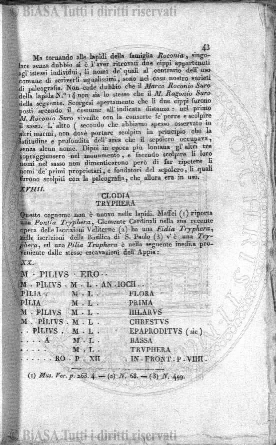 43
Ma tornando alle lapidi della famiglia Roconia, singo-
lare senza dubbio si è l'aver ritrovati due cippi appartenuti
agl'stessi individui, li nomi de' quali al contrario dell'uno
comune di scriverli aquilissimi, sono nel caso nostro soggetti
di paleografia. Non cade dubbio che il Marco Roconio Suro
della lapida N.° 14 non sia lo stesso che il M. Rogonio Suro
della seguente. Scorgesi apertamente che il due cippi furono
posti secondo il costume all'indicata distanza: nel primo
M. Roconio Suro vivente con la consorte se porre e scolpire
il sasso. L'altro (secondo che abbiamo spesso osservato in
altri marmi, non dové portare scolpita in principio che la
latitudine e profondità dell'area che il sepolcro occupava,
senza alcun nome. Dipoi in epoca più lontana gl'altri tre
sopraggiunsero nel monumento, e facendo scolpire li loro
nomi nel sasso non dimenticarono però di far ripetere li
nomi de' primi proprietarj, e fondatori del sepolcro, li quali
furono scolpiti con la paleografia, che allora era in uso.
XVIIII.
CLODIA
TRYPHERA
Questo cognome non è nuovo nelle lapidi. Maffei (1) riporta
una Pontia Tryphera, Clemente Cardinali nella sua recente
opera delle Iscrizioni Veliterne (2) ha una Fidia Tryfera,
nelle iscrizioni della Basilica di S. Paolo (3) v'è una Try-
fera, ed una Pilia Truphera è nella seguente inedita pro-
veniente dalle stesse escavazioni dell'Appia:
XX.
M · PILIVS · ERO
M · PILIVS · M · L · AN IOCH
PILIA · M · L · FLORA
PILIA · M · L · PRIMA
M · PILIVS · M · L · HILARVS
M · PILIVS · M · L · CHRESTVS
. PILIVS · M · L · EPAPRODITVS (sic)
A · M · L · BASSA
M · L · TRVPHERA
RO · P · XII IN · FRONT · P · VIIII
(1) Mus. Ver. p. 268. 4. — (2) N. 68. — (3) N. 449.